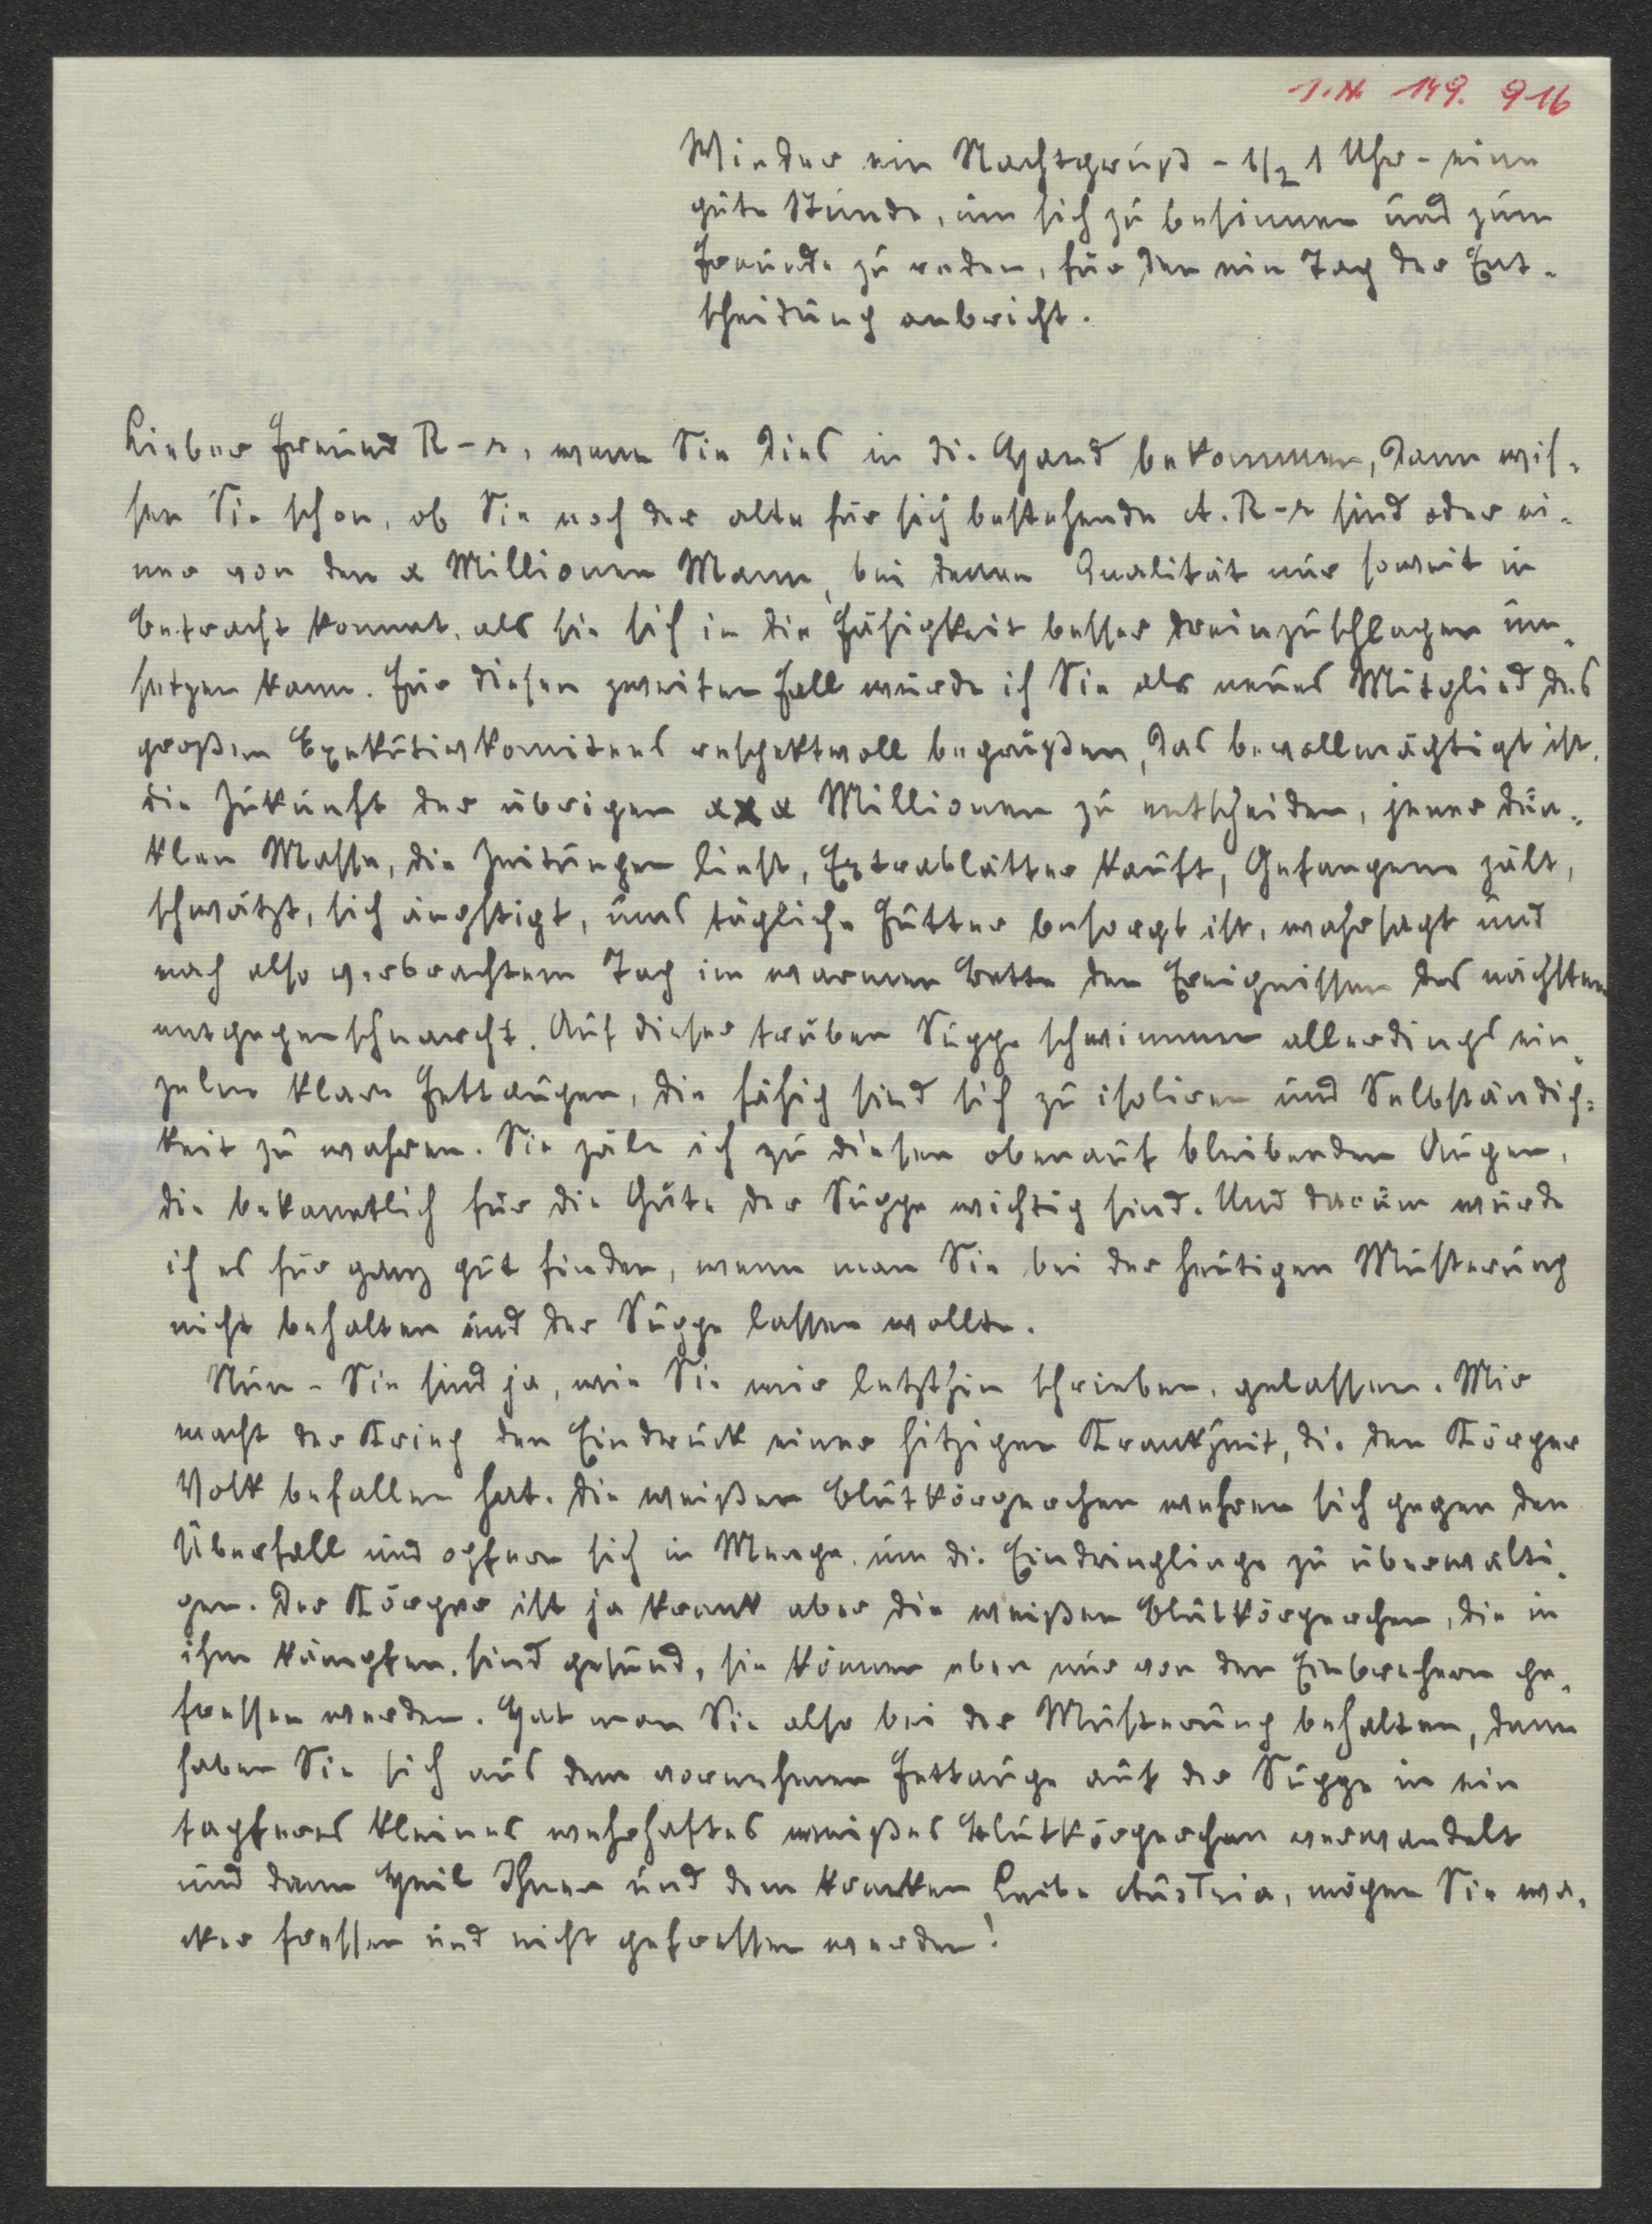 I. N. 149. 916
Wieder ein Nachtgruß - 1/2 1 Uhr - eine
gute Stunde, um sich zu besinnen und zum
Freunde zu reden, für den ein Tag der Ent-
scheidung anbricht.
Lieber Freund R-r, wenn Sie dies in die Hand bekommen, dann wis-
sen Sie schon, ob Sie noch der alte für sich bestehende A. R-r sind oder ei-
ner von den x Millionen Mann, bei denen Qualität nur soweit in
Betracht kommt, als sie sich in die Fähigkeit besser dreinzuschlagen um-
setzen kann. Für diesen zweiten Fall würde ich Sie als neues Mitglied des
großen Exekutivkomitees respektvoll begrüßen, das bevollmächtigt ist,
die Zukunft der übrigen xxx Millionen zu entscheiden, jener dun-
klen Masse, die Zeitungen liest, Extrablätter kauft, Gefangene zält,
schwätzt, sich ängstigt, ums tägliche Futter besorgt ist, wahrsagt und
nach also verbrachtem Tag im warmen Bette den Ereignissen des nächsten
entgegenschnarcht. Auf dieser trüben Suppe schwimmen allerdings ein-
zelne klare Fettaugen, die fähig sind sich zu isoliren und Selbständig-
keit zu wahren. Sie zäle ich zu diesen obenauf bleibenden Augen,
die bekanntlich für die Güte der Suppe wichtig sind. Und darum würde
ich es für ganz gut finden, wenn man Sie bei der heutigen Musterung
nicht behalten und der Suppe lassen wollte.
Nun - Sie sind ja, wie Sie mir letzthin schrieben, gelassen. Mir
macht der Krieg den Eindruck einer hitzigen Krankheit, die den Körper
Volk befallen hat. Die weißen Blutkörperchen wehren sich gegen den
Überfall und opfern sich in Menge, um die Eindringlinge zu überwälti-
gen. Der Körper ist ja krank aber die weißen Blutkörperchen, die in
ihm kämpfen, sind gesund, sie können eben nur von den Einbrechern ge-
fressen werden. Hat man Sie also bei der Musterung behalten, dann
haben Sie sich aus dem vornehmen Fettauge auf der Suppe in ein
tapferes kleines wehrhaftes weißes Blutkörperchen verwandelt
und dann Heil Ihnen und dem kranken Leibe Austria, mögen Sie wa-
cker fressen und nicht gefressen werden!